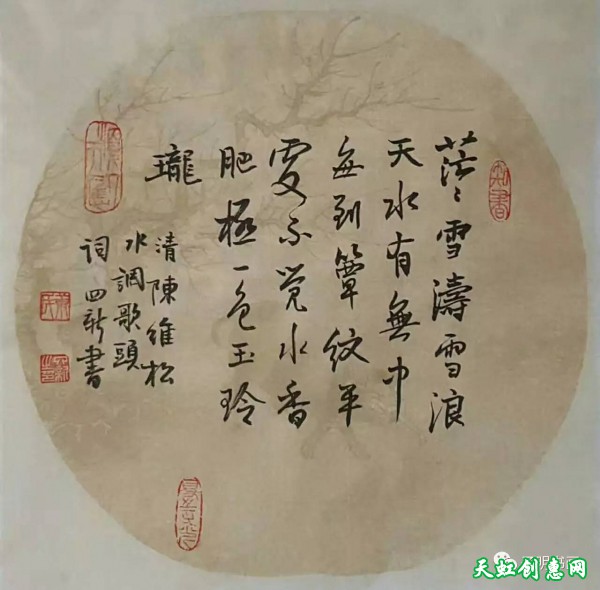 茫〻雪濤雪浪
天水有無中
每到簟紋平
處不覺水香
肥極一色玉玲
瓏
清陳維松
水調歌頭
詞四新書
天虹创惠网